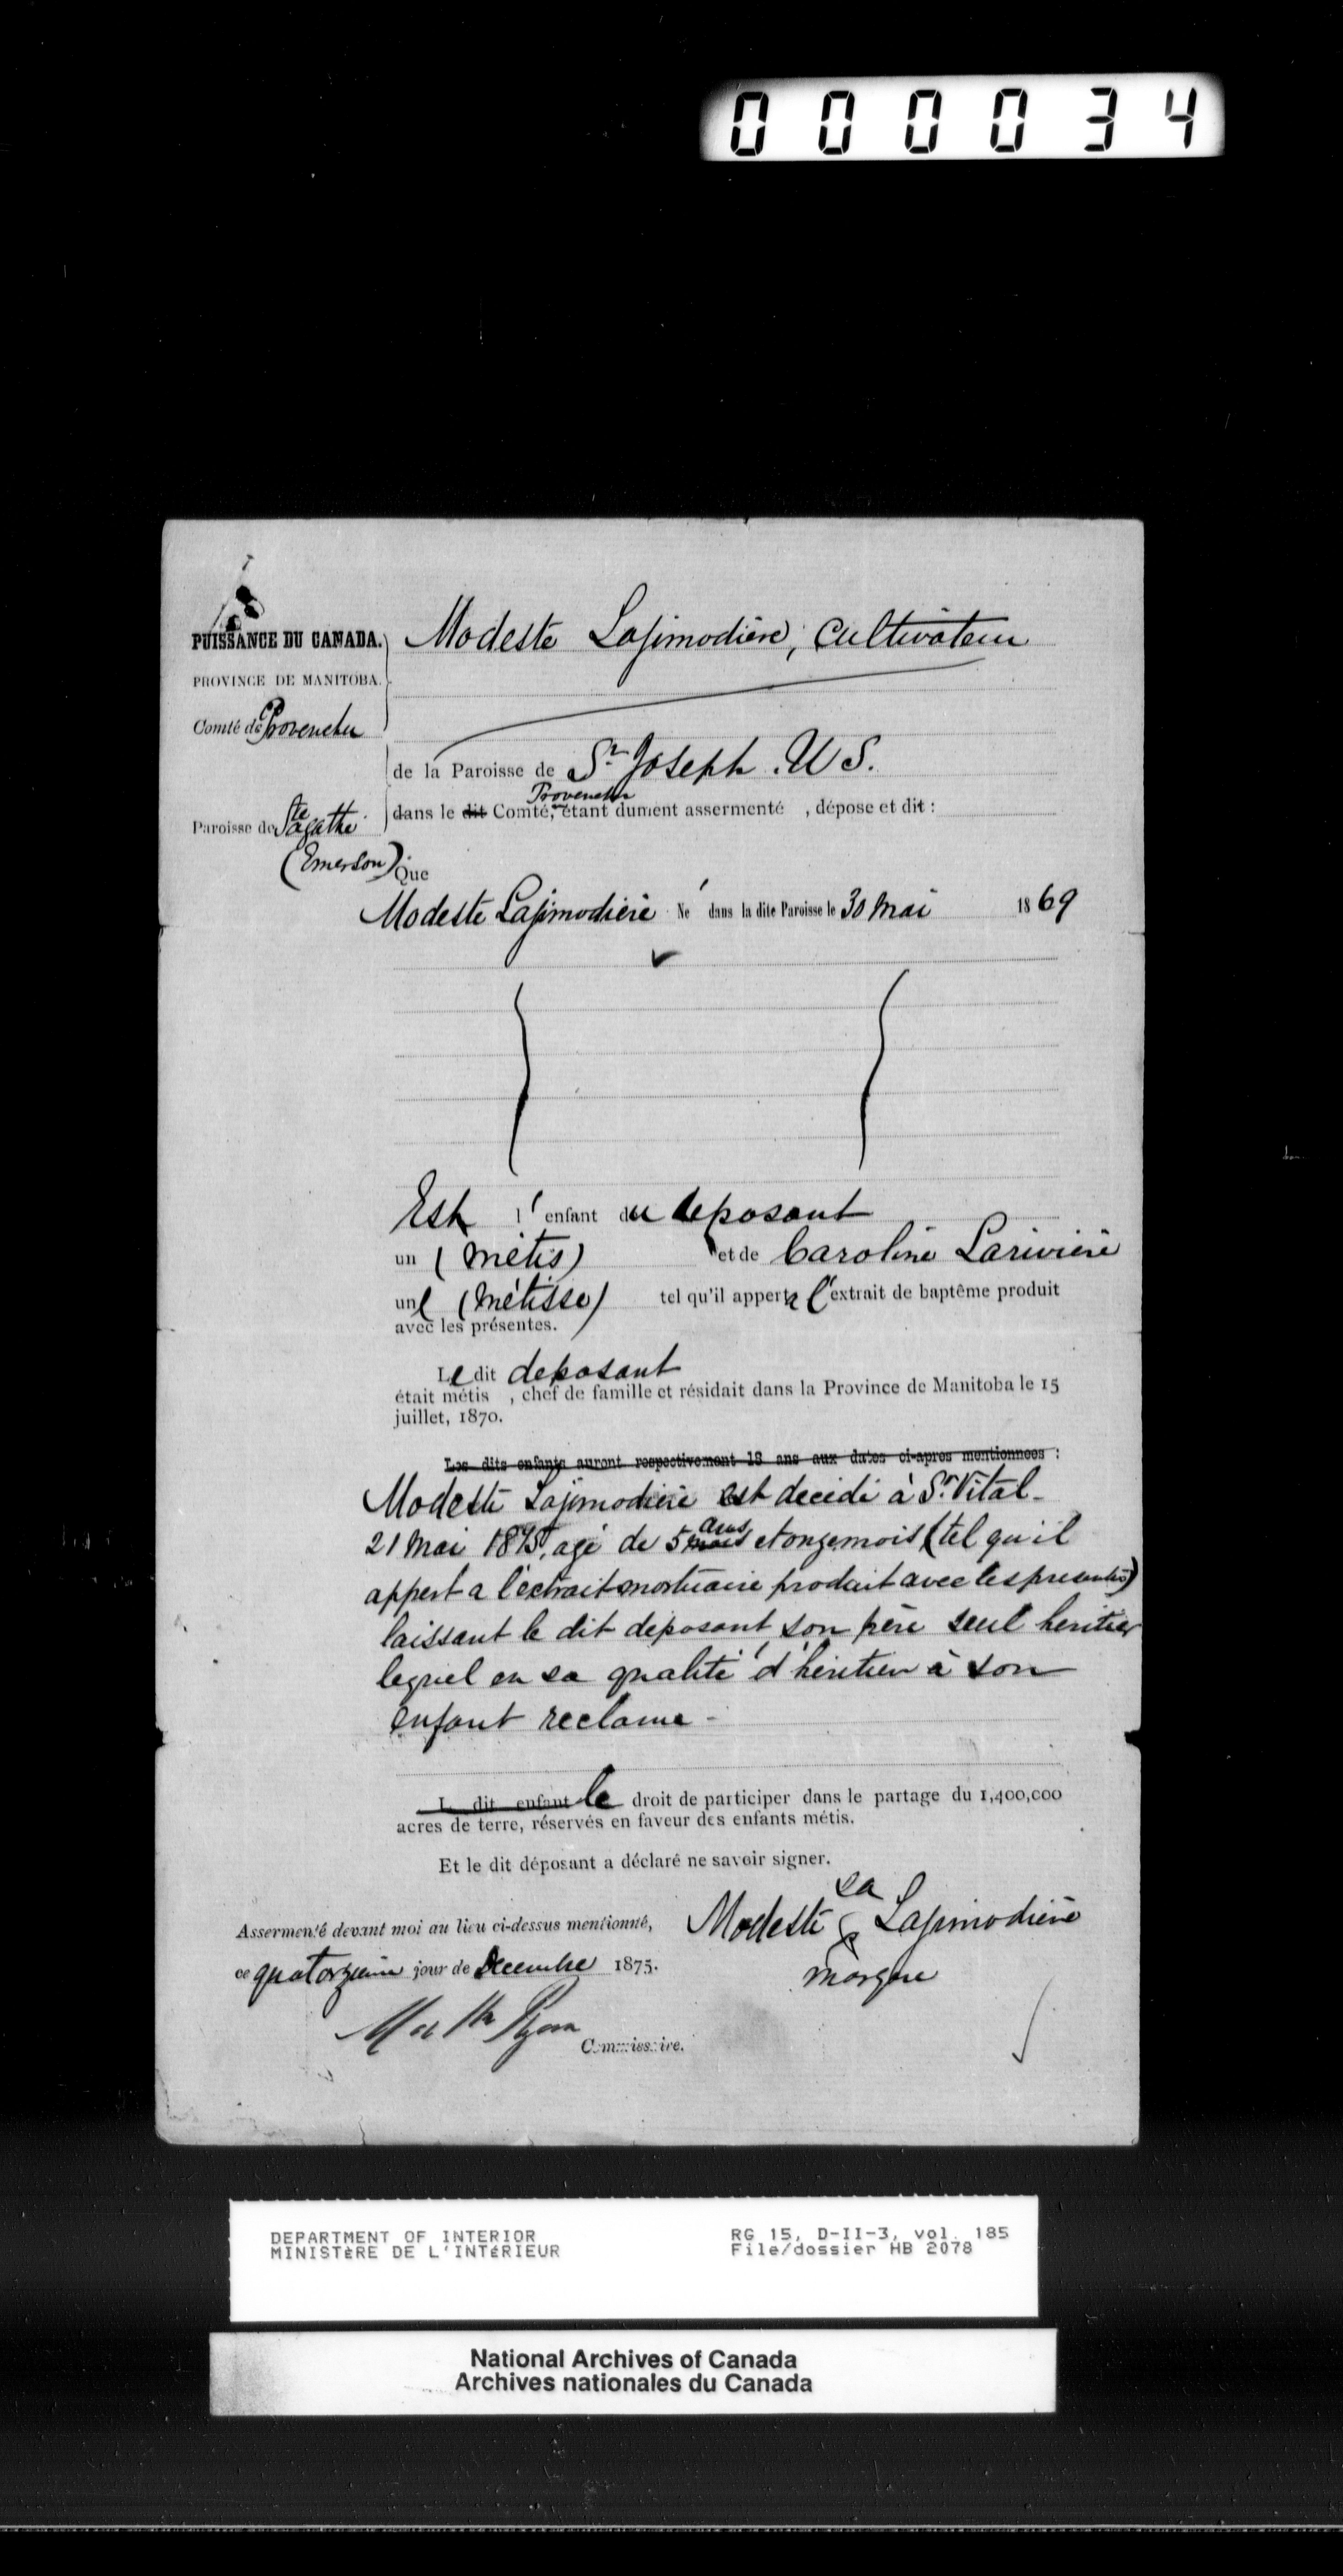 000034
PUISSANCE DU CANADA. Modeste Lajimodière, Cultivateur
PROVINCE DE MANITOBA.
Comté de Provencher
de la Paroisse de St Joseph U S.
Provencher
dans le dit Comté, étant dument assermenté , dépose et dit :
Paroisse de Ste Agathe
(Emerson) Que
Modeste Lajimodière Né dans la dite Paroisse le 30 Mai 1869
Est l'enfant du deposant
un (Métis) et de Caroline Larivière
une (Métisse) tel qu'il appert a l'extrait de baptême produit
avec les présentes.
Le dit deposant
était métis , chef de famille et résidait dans la Province de Manitoba le 15
juillet, 1870.
Les dits enfants auront respectivement 18 ans aux dates ci-apres mentionnees :
Modeste Lajimodière est decidé à St Vital -
21 Mai 1875, agé de 5 mois ans et onze mois (tel qu'il
appert a l'extrait mortuaire produit avec les presentes)
laissant le dit deposant, son père seul heritier
lequel en sa qualité d'héritier à son
enfant reclame -
L dit enfant le droit de participer dans le partage du 1,400,000
acres de terre, réservés en faveur des enfants métis.
Et le dit déposant a déclaré ne savoir signer.
sa
Assermenté devant moi au lieu ci-dessus mentionné, Modeste x Lajimodière
ce quatorzieme jour de Decembre 1875. marque
Ryan
Commissaire.
DEPARTMENT OF INTERIOR RG 15, D-II-3, vol. 185
MINISTÈRE DE L'INTÉRIEUR File/dossier HB 2078
National Archives of Canada
Archives nationales du Canada